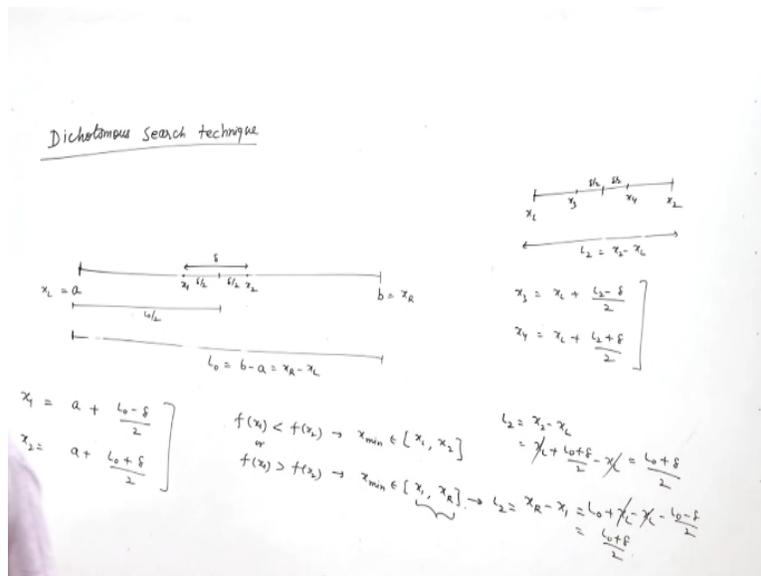 Dichotomous Search technique
δ
x₁ δ/2 δ/2 x₂
x_L = a
b = x_R
L₀/2
L₀ = b - a = x_R - x_L
x₁ = a + (L₀ - δ)/2
x₂ = a + (L₀ + δ)/2
f(x₁) < f(x₂) → x_min ∈ [x_L, x₂]
or
f(x₁) > f(x₂) → x_min ∈ [x₁, x_R] → L₂ = x_R - x₁ = L₀ + x_L - x_L - (L₀ - δ)/2
= (L₀ + δ)/2
δ/2 δ/2
x_L x₃ x₄ x₂
L₂ = x₂ - x_L
x₃ = x_L + (L₂ - δ)/2
x₄ = x_L + (L₂ + δ)/2
L₂ = x₂ - x_L
= x_L + (L₀ + δ)/2 - x_L = (L₀ + δ)/2